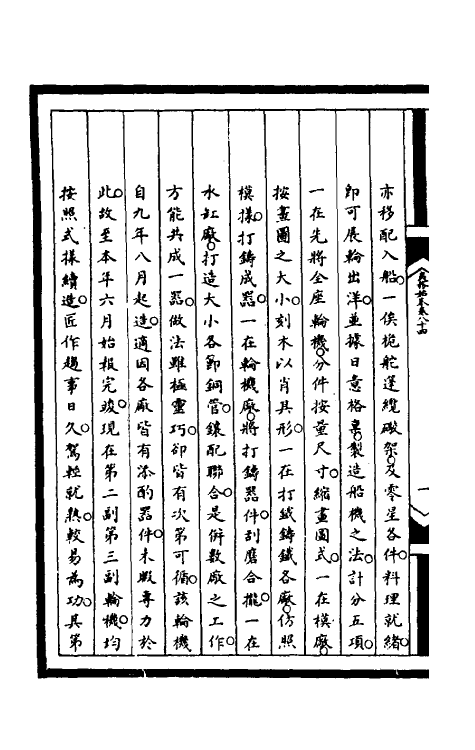 亦移配入船。一俟桅舵篷纜礮架。及零星各件。料理就緒。
即可展輪出洋。並據日意格稟。製造船機之法。計分五項。
一在先將全座輪機。分件按量尺寸。縮畫圖式。一在模廠。
按畫圖之大小。刻木以肖其形。一在打鐵鑄鐵各廠。仿照
模樣。打鑄成器。一在輪機廠。將打鑄器件。刮磨合攏。一在
水缸廠。打造大小各節銅管。鑲配聯合。是併數廠之工作。
方能共成一器。做法雖極靈巧。卻皆有次第可循。該輪機
自九年八月起造。適因各廠皆有添酌器件。未暇專力於
此。故至本年六月始報完竣。現在第二副第三副輪機。均
按照式樣續造。匠作趨事日久。駕輕就熟。較易為功。其第